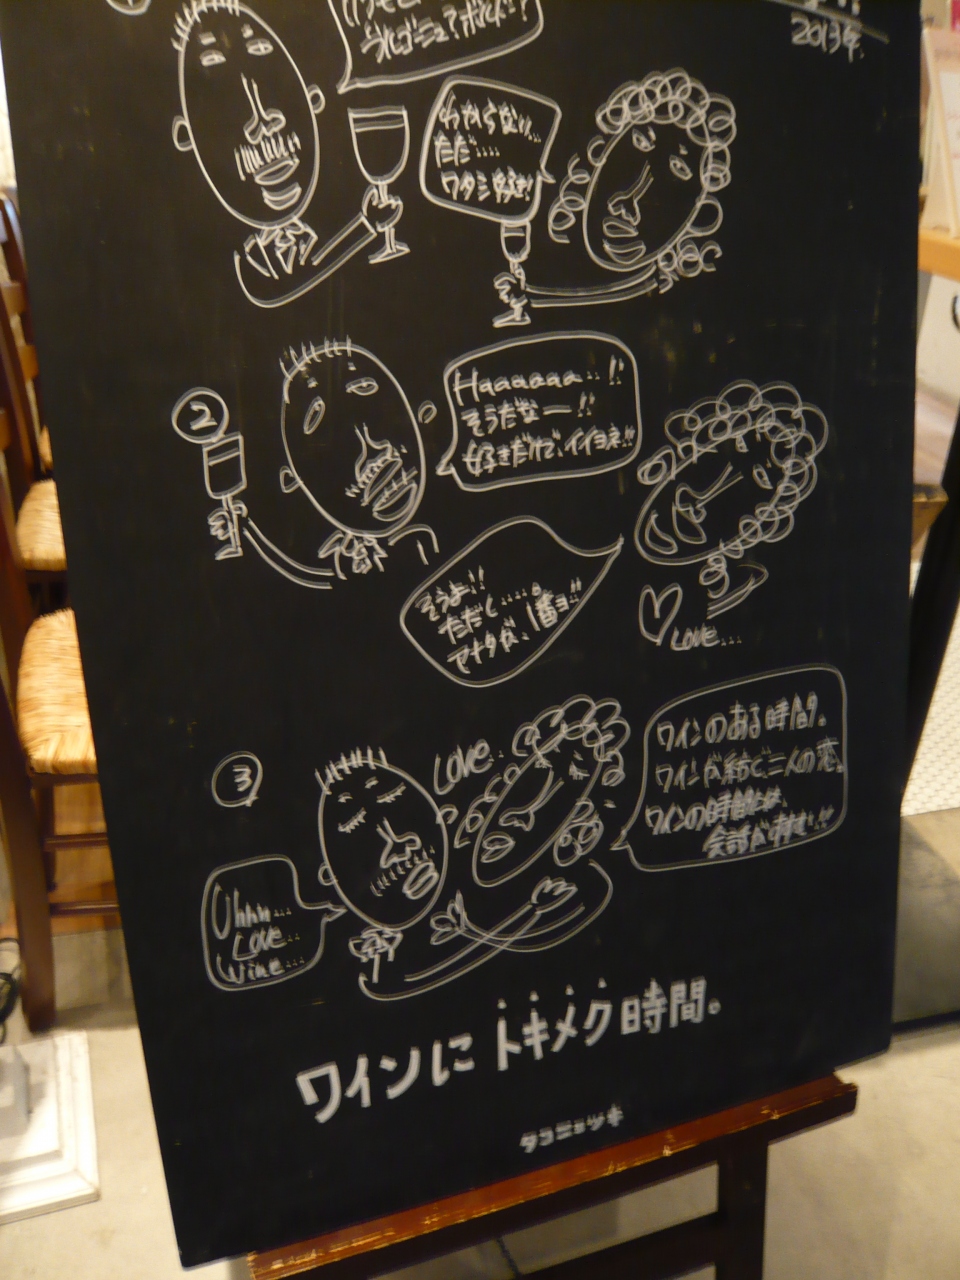 ブルゴーニュ?ボルドー?
2013年
わからない...
ただ....
ワタシ好き!
②
Haaaaaa..!!
そうだなー!!
好きだけで、イイヨネ!!
そうよ!!
ただし.....
アナタが、1番ヨ!!
Love...
③
Love..
ワインのある時間。
ワインが結ぶ二人の恋。
ワインの時間とは、
会話がはずむ!!
Uhhh...
Love..
Wine...
ワインにトキメク時間。
タコニョッキ